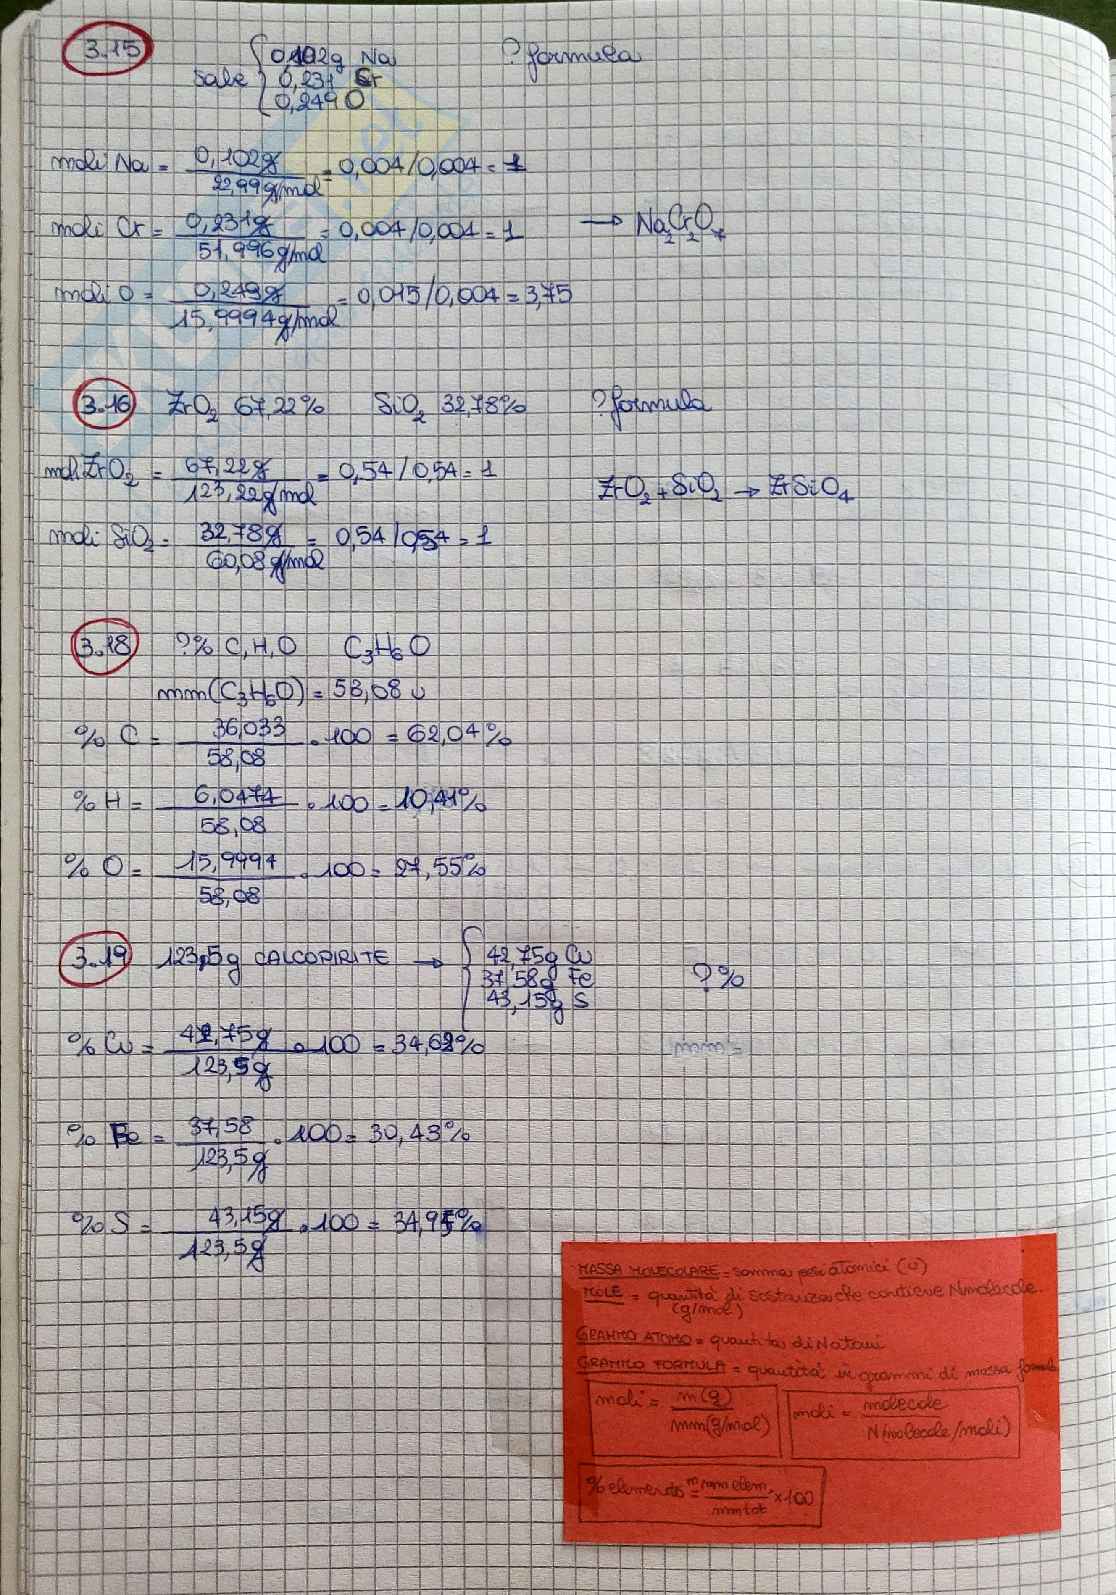 3.15 sale { 0,102g Na ? formula
0,231 Cr
0,249 O
moli Na = 0,102g / 22,99g/mol = 0,004/0,004 = 1
moli Cr = 0,231g / 51,996g/mol = 0,004/0,004 = 1 → Na2Cr2O7
moli O = 0,249g / 15,9994g/mol = 0,015/0,004 = 3,75
3.16 ZrO2 67,22% SiO2 32,78% ? formula
mol ZrO2 = 67,22g / 123,22g/mol = 0,54/0,54 = 1
ZrO2 + SiO2 → ZrSiO4
moli SiO2 = 32,78g / 60,08g/mol = 0,54/0,54 = 1
3.18 ?% C, H, O C3H6O
mm(C3H6O) = 58,08 u
% C = 36,033 / 58,08 • 100 = 62,04%
% H = 6,0474 / 58,08 • 100 = 10,41%
% O = 15,9994 / 58,08 • 100 = 27,55%
3.19 123,5g CALCOPIRITE → { 42,75g Cu
37,58g Fe ?%
43,15g S
% Cu = 42,75g / 123,5g • 100 = 34,62%
mm =
% Fe = 37,58 / 123,5g • 100 = 30,43%
% S = 43,15g / 123,5g • 100 = 34,95%
MASSA MOLECOLARE = somma pesi atomici (u)
MOLE = quantità di sostanza che contiene N molecole.
(g/mol)
GRAMMO ATOMO = quantità di N atomi
GRAMMO FORMULA = quantità in grammi di massa formula
moli = m(g) / mm(g/mol) moli = molecole / N(molecole/moli)
% elemento = m mm elem. / mm tot × 100